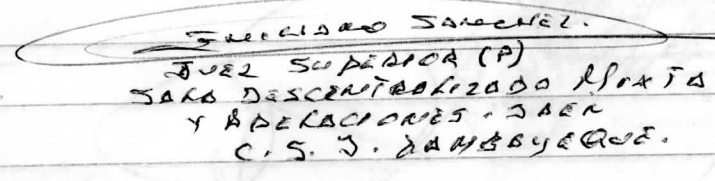 SANCHEZ.
JUEZ SUPERIOR (P)
SALA DESCENTRALIZADA MIXTA
Y APELACIONES. JAEN
C. S. J. LAMBAYEQUE.